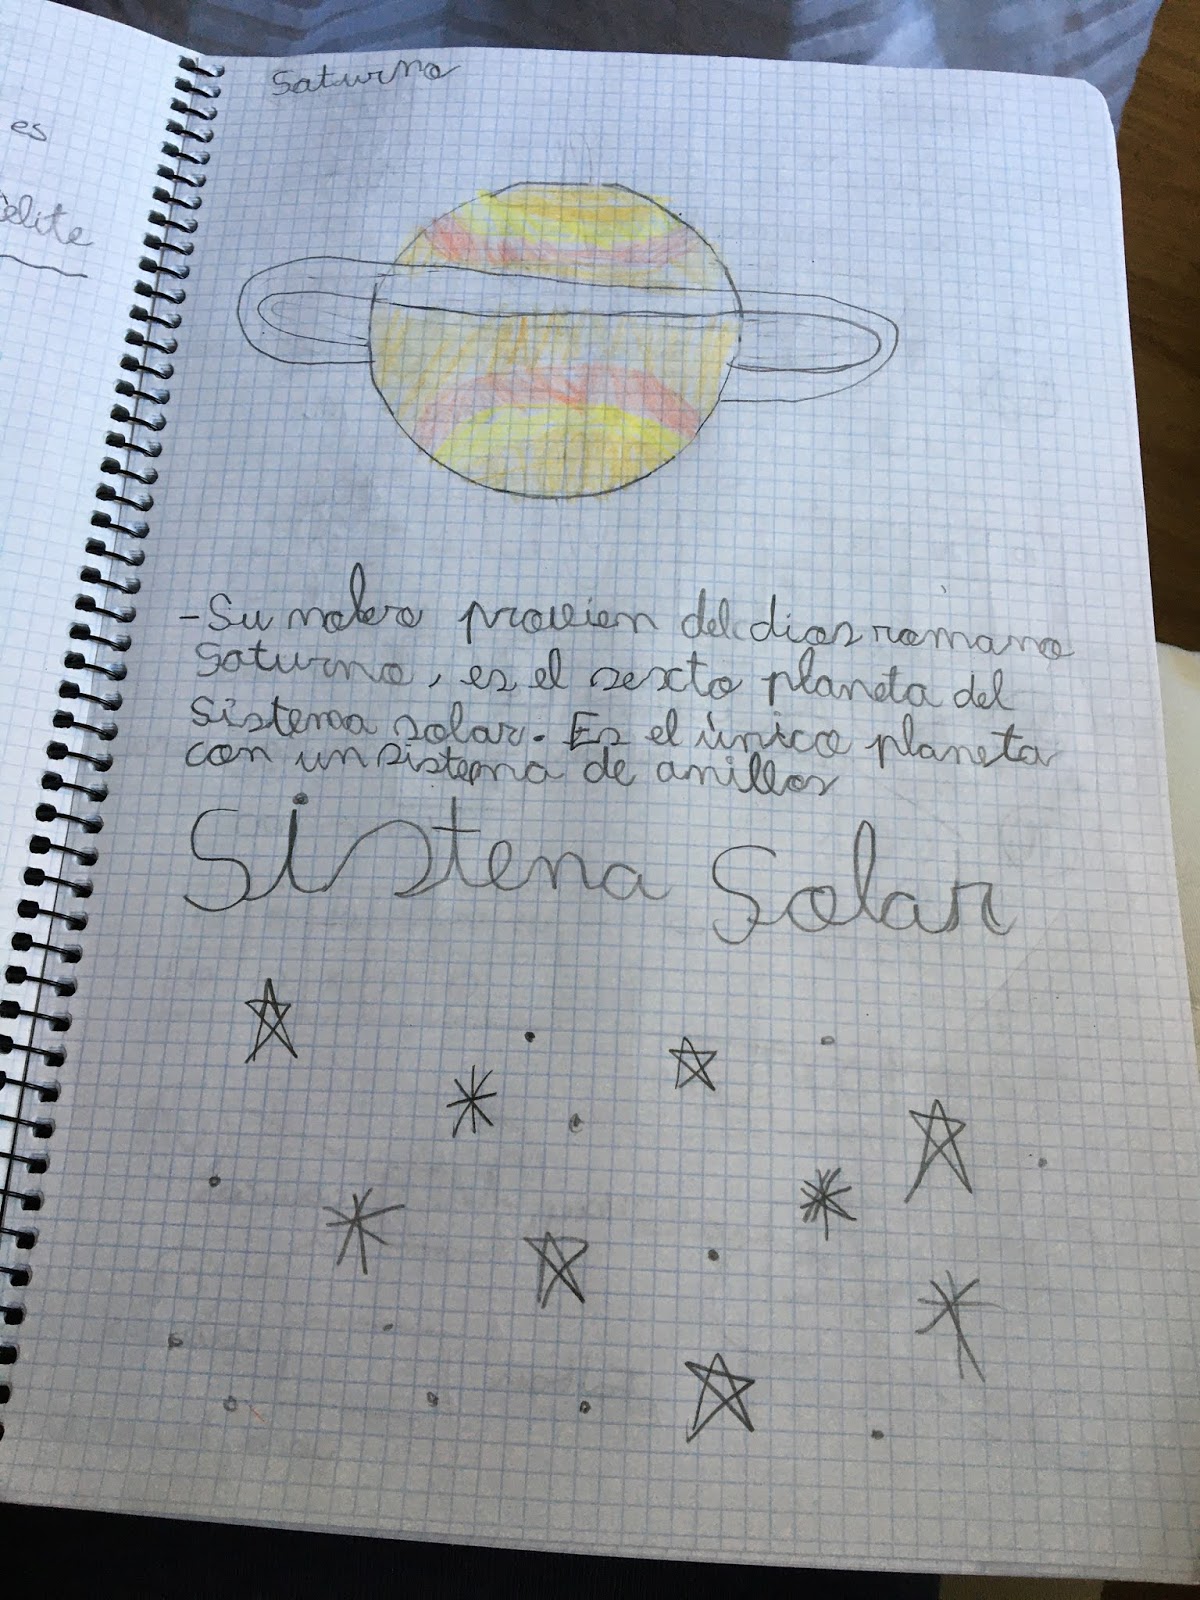 es
élite
Saturno
-Su nobero provien del dios romano
Saturno, es el sexto planeta del
sistema solar. Es el único planeta
con un sistema de anillos
Sistena Solar